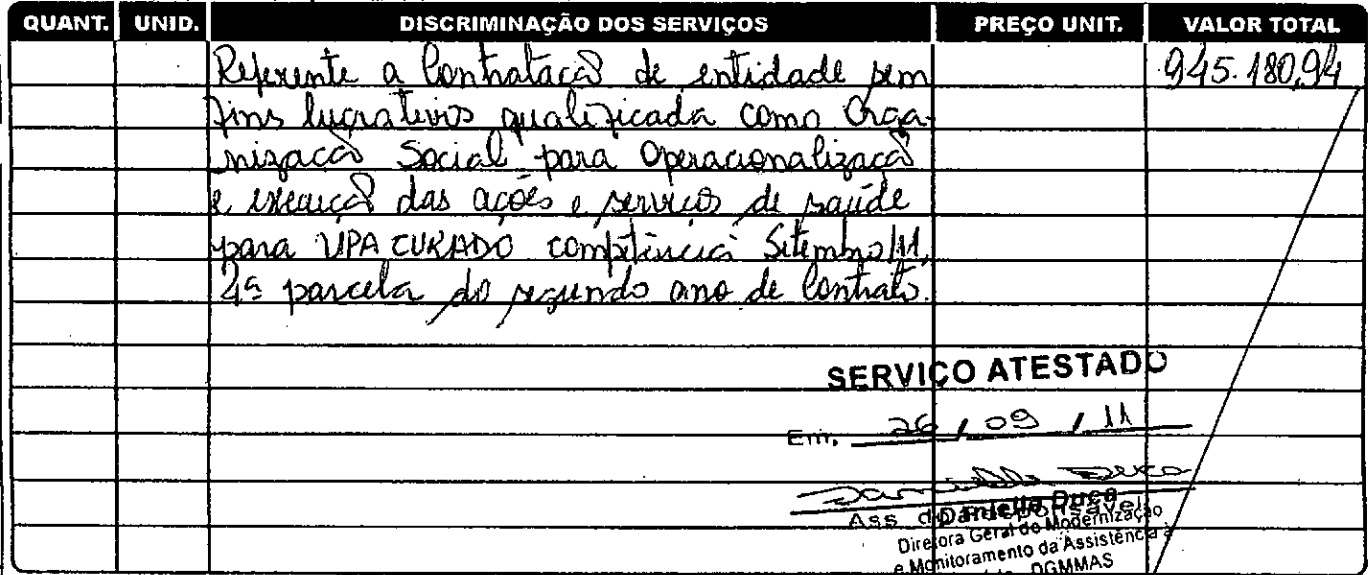 QUANT. UNID. DISCRIMINAÇÃO DOS SERVIÇOS PREÇO UNIT. VALOR TOTAL
Referente a Contratação de entidade sem 945.180,94
fins lucrativos qualificada como Orga-
nização Social para Operacionalização
e execução das ações e serviços de saúde
para UPA CURADO competência Setembro/11,
4ª parcela do segundo ano de Contrato.
SERVIÇO ATESTADO
Em, 26 / 09 / 11
Danielle Duca
Ass. do Responsável
Danielle Duca
Diretora Geral de Modernização
e Monitoramento da Assistência à
DGMMAS